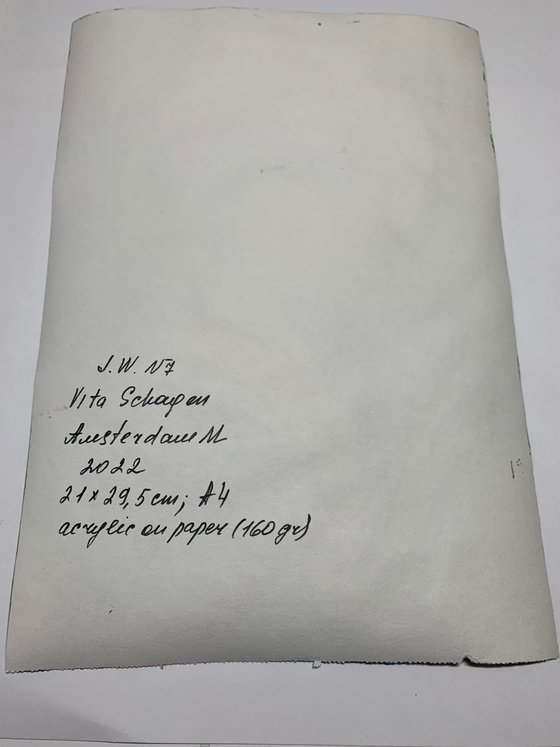 J.W. N7
Vita Schagen
Amsterdam
2022
21 x 29,5 cm; A4
acrylic on paper (160 gr)